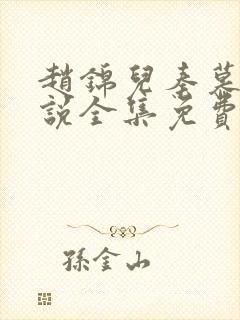 趙錦兒秦慕
說全集免費
孫金山